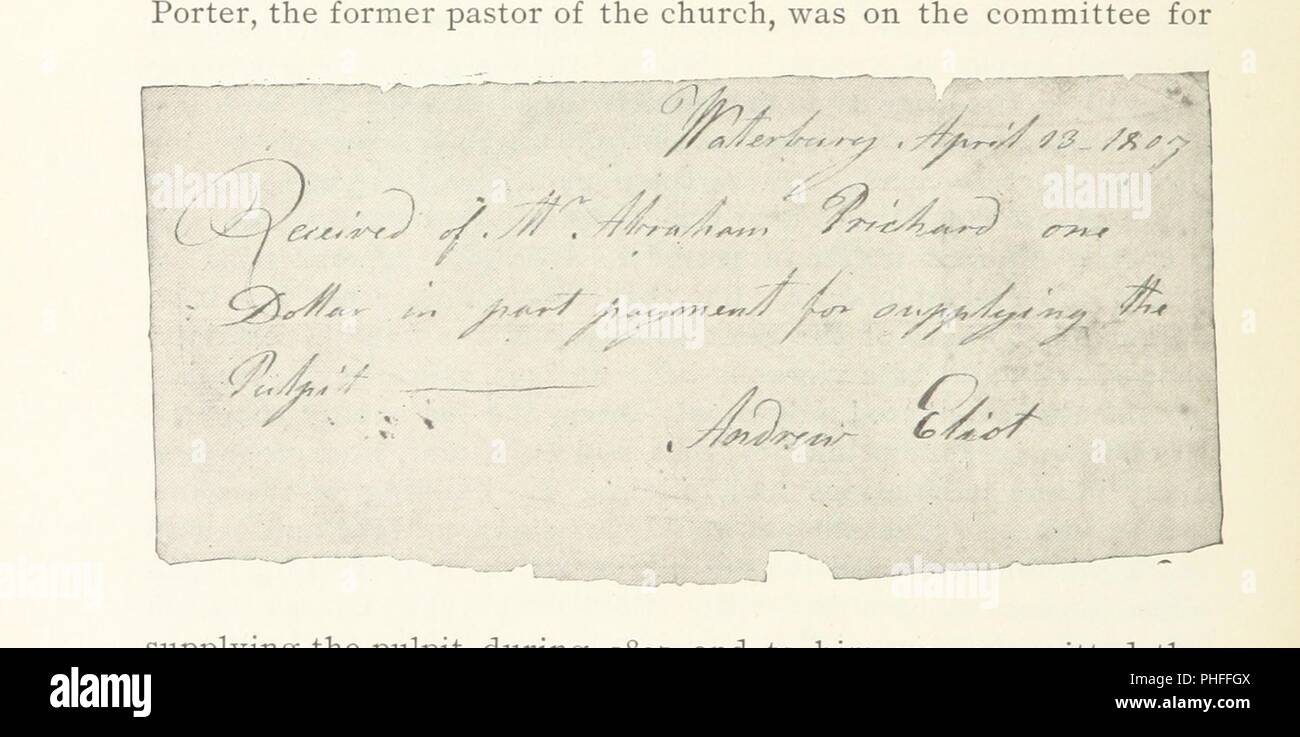 Porter, the former pastor of the church, was on the committee for
Waterbury April 13 - 1807
Received of Mr. Abraham Prichard one
Dollar in part payment for supplying the
Pulpit
Andrew Eliot
supplying the pulpit during
alamy
Image ID: PHFFGX
www.alamy.com